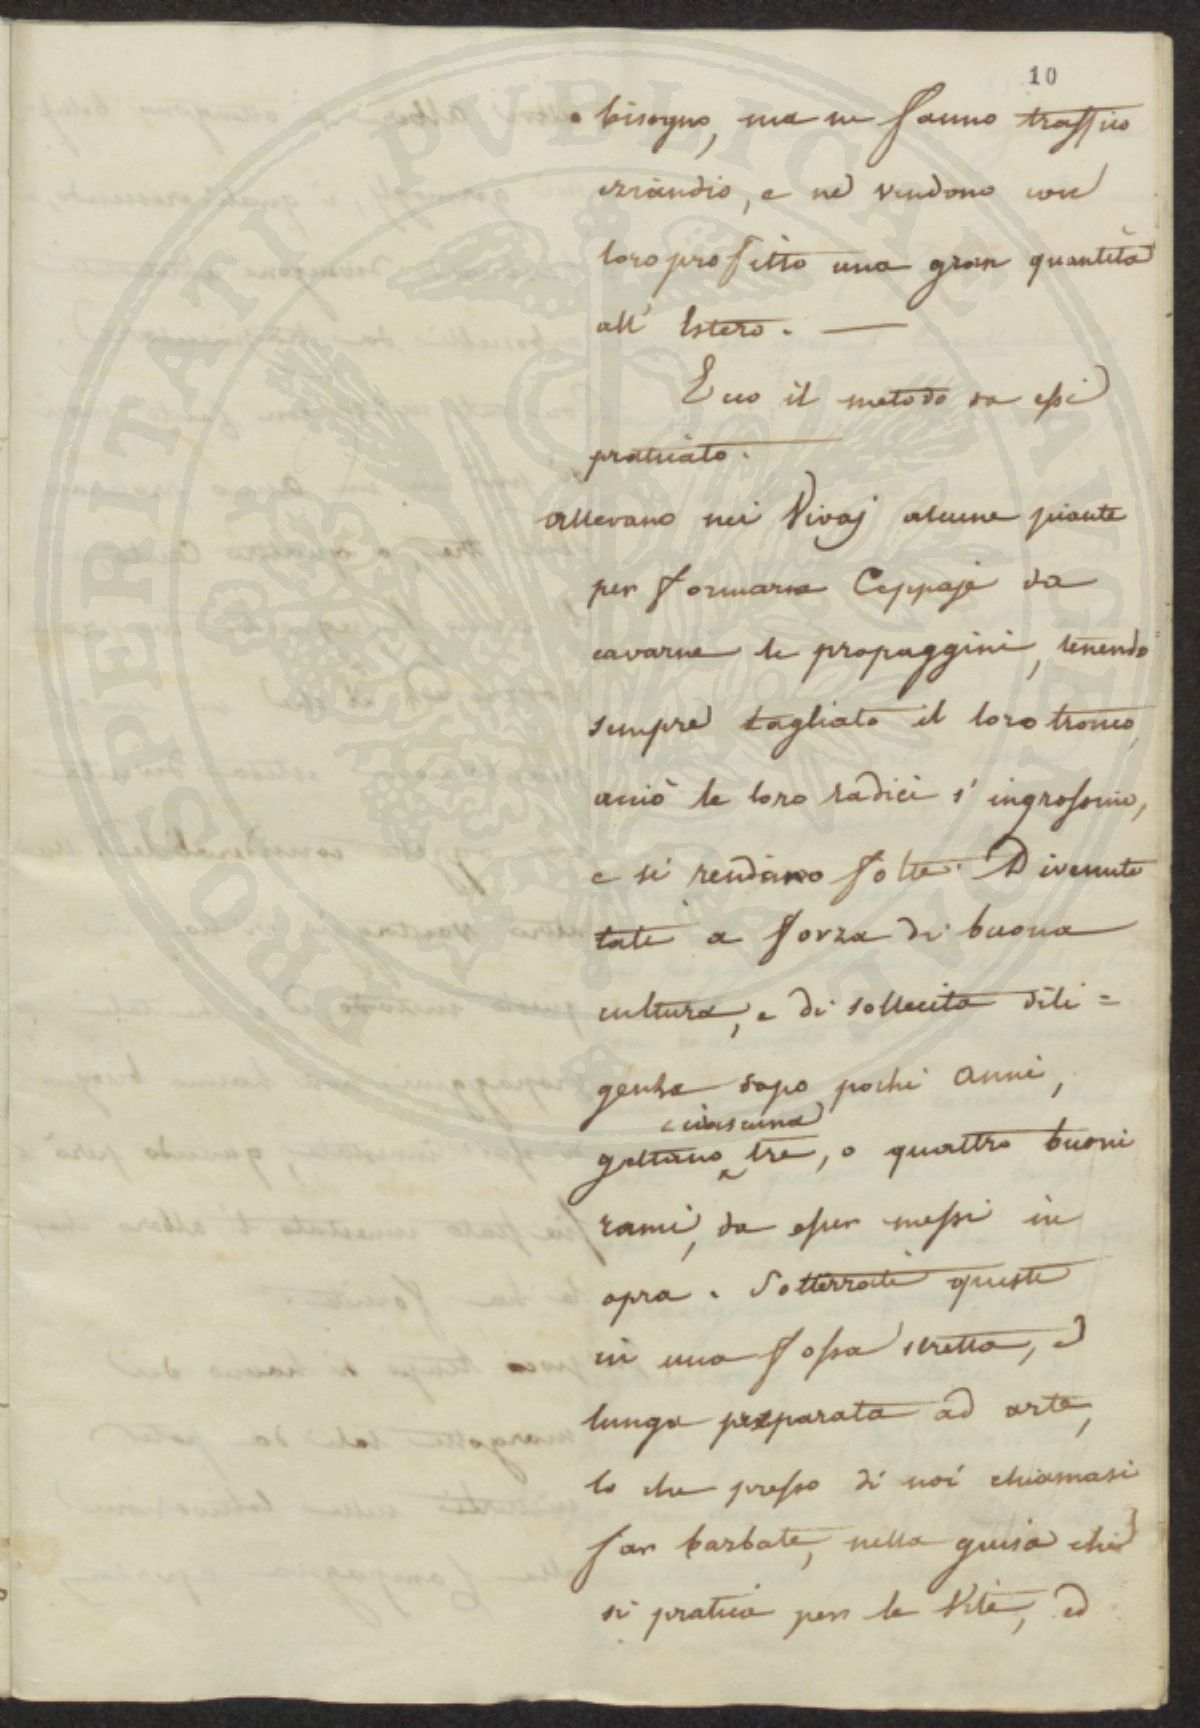 10
bisogno, ma ne fanno traffico
eziandio, e ne vendono con
loro profitto una gran quantità
all' Estero. —
Ecco il metodo da essi
praticato.
Allevano nei Vivaj alcune piante
per formarne Ceppaje da
cavarne le propaggini, tenendo
sempre tagliato il loro tronco,
acciò le loro radici s' ingrossino,
e si rendano folte. Divenute
tali a forza di buona
cultura, e di sollecita dili=
genza dopo pochi anni,
ciascuna
gettano tre, o quattro buoni
rami, da esser messi in
opra. Sotterrati questi
in una fossa stretta, e
lunga preparata ad arte,
lo che presso di noi chiamasi
far barbate, nella guisa che
si pratica per le Vite, ed
PROSPERITATI PVBLICAE AVGENDAE